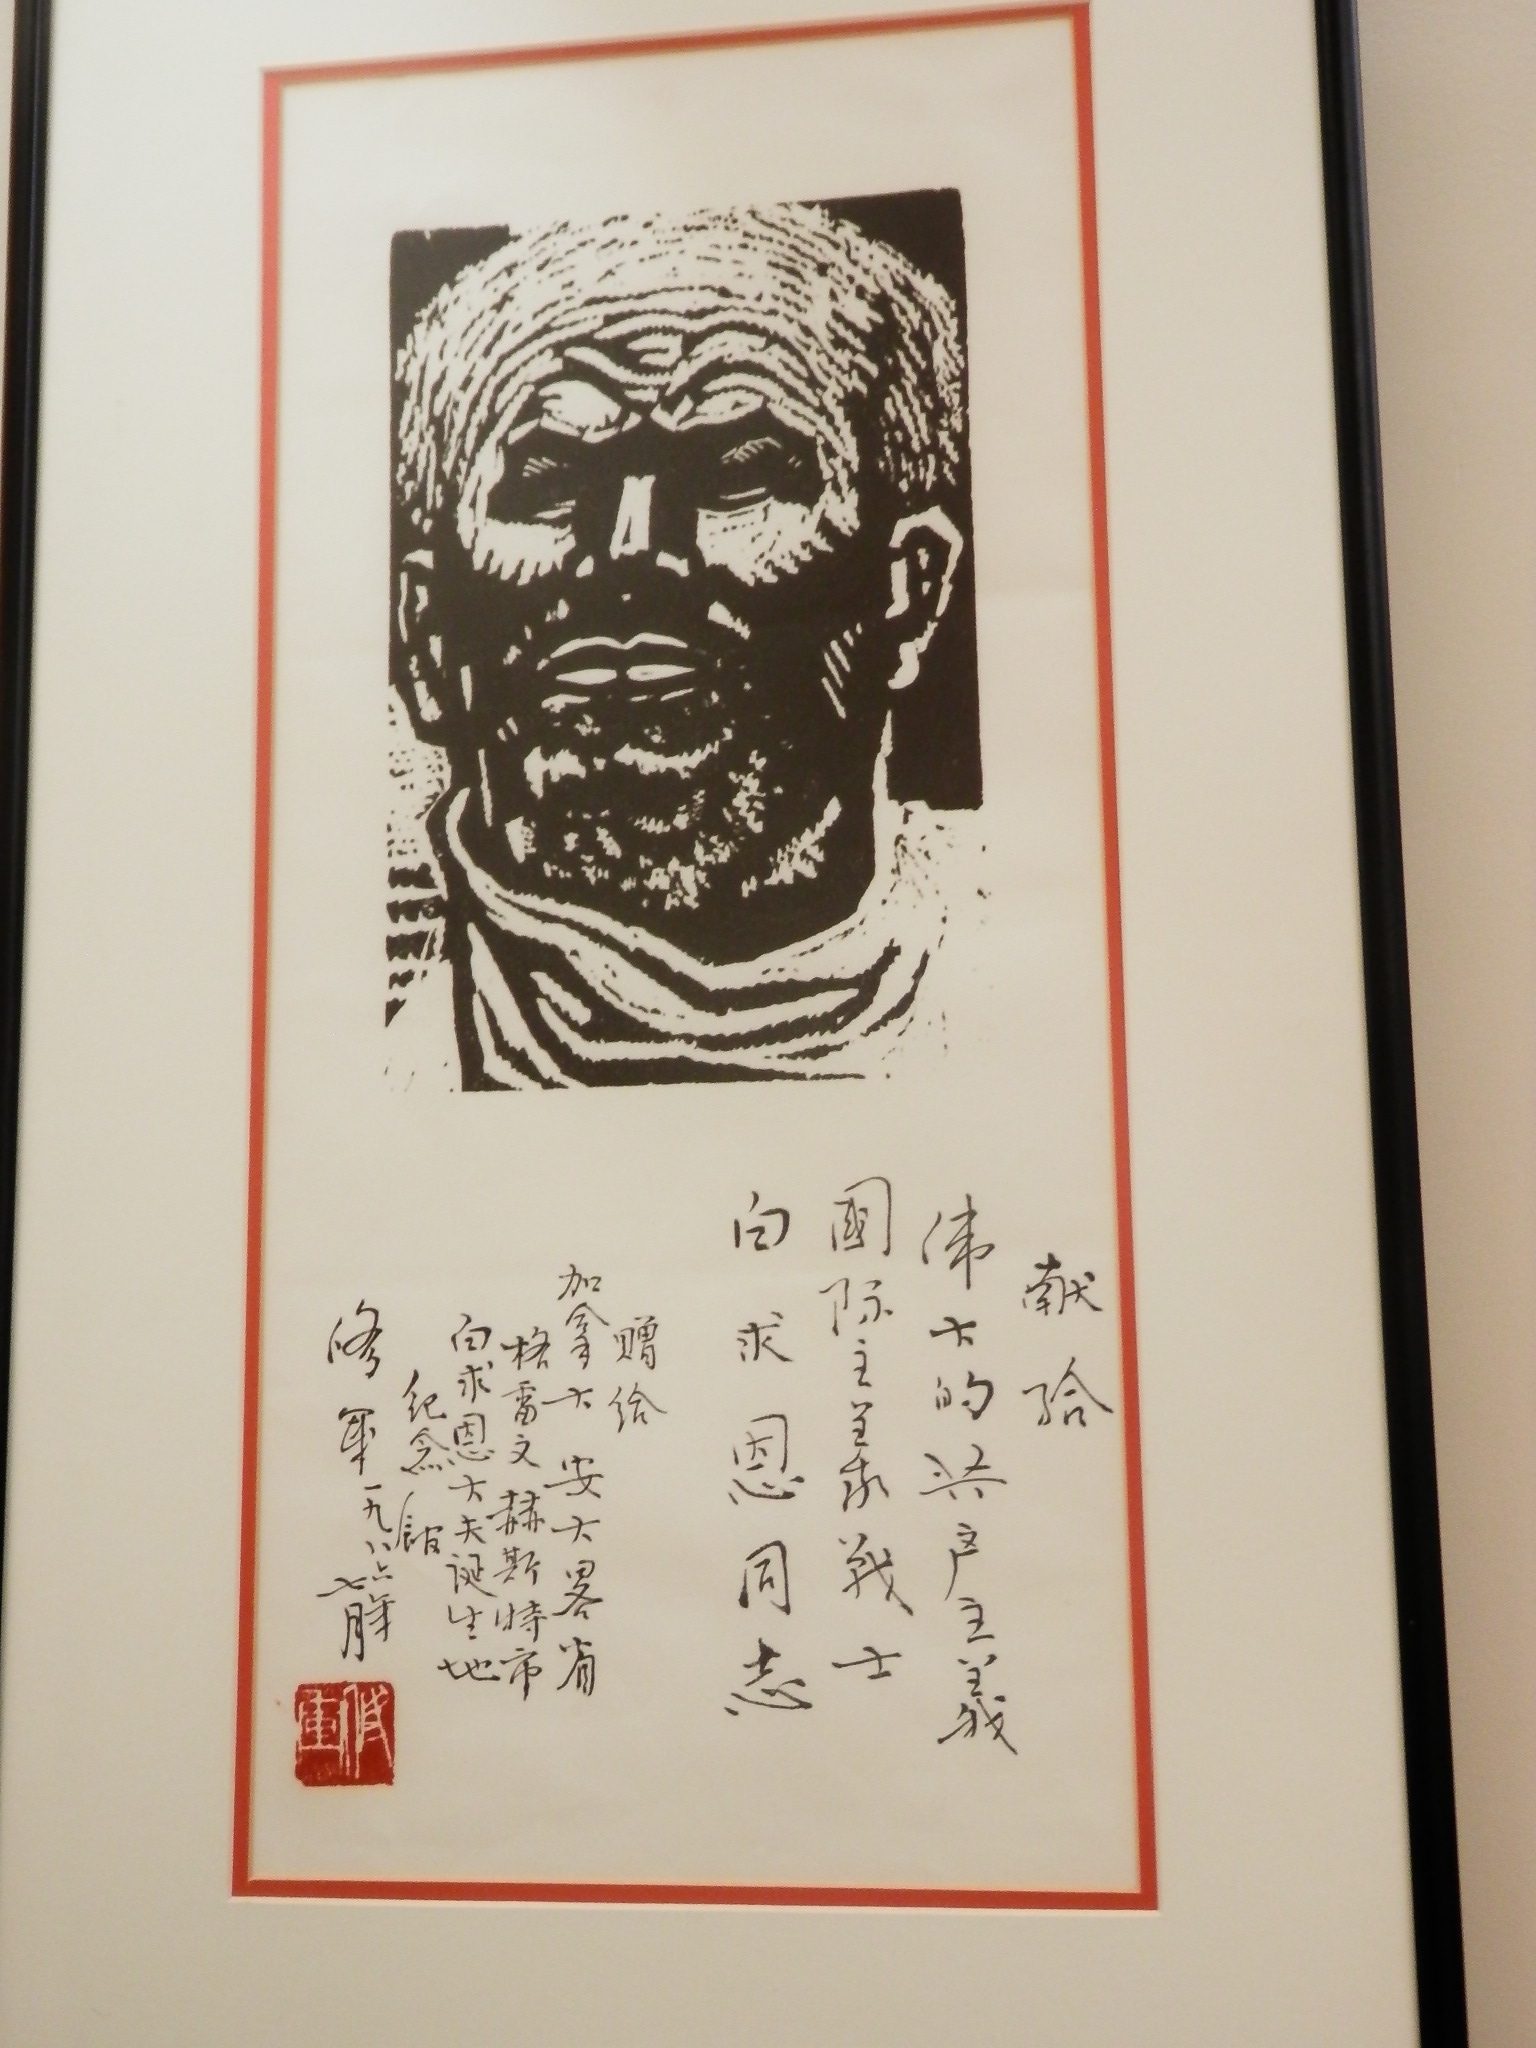 献给
伟大的共产主義
國际主義战士
白求恩同志
赠给
加拿大 安大畧省
格雷文赫斯特市
白求恩大夫诞生地
纪念馆
修军 一九八六年
七月
修軍